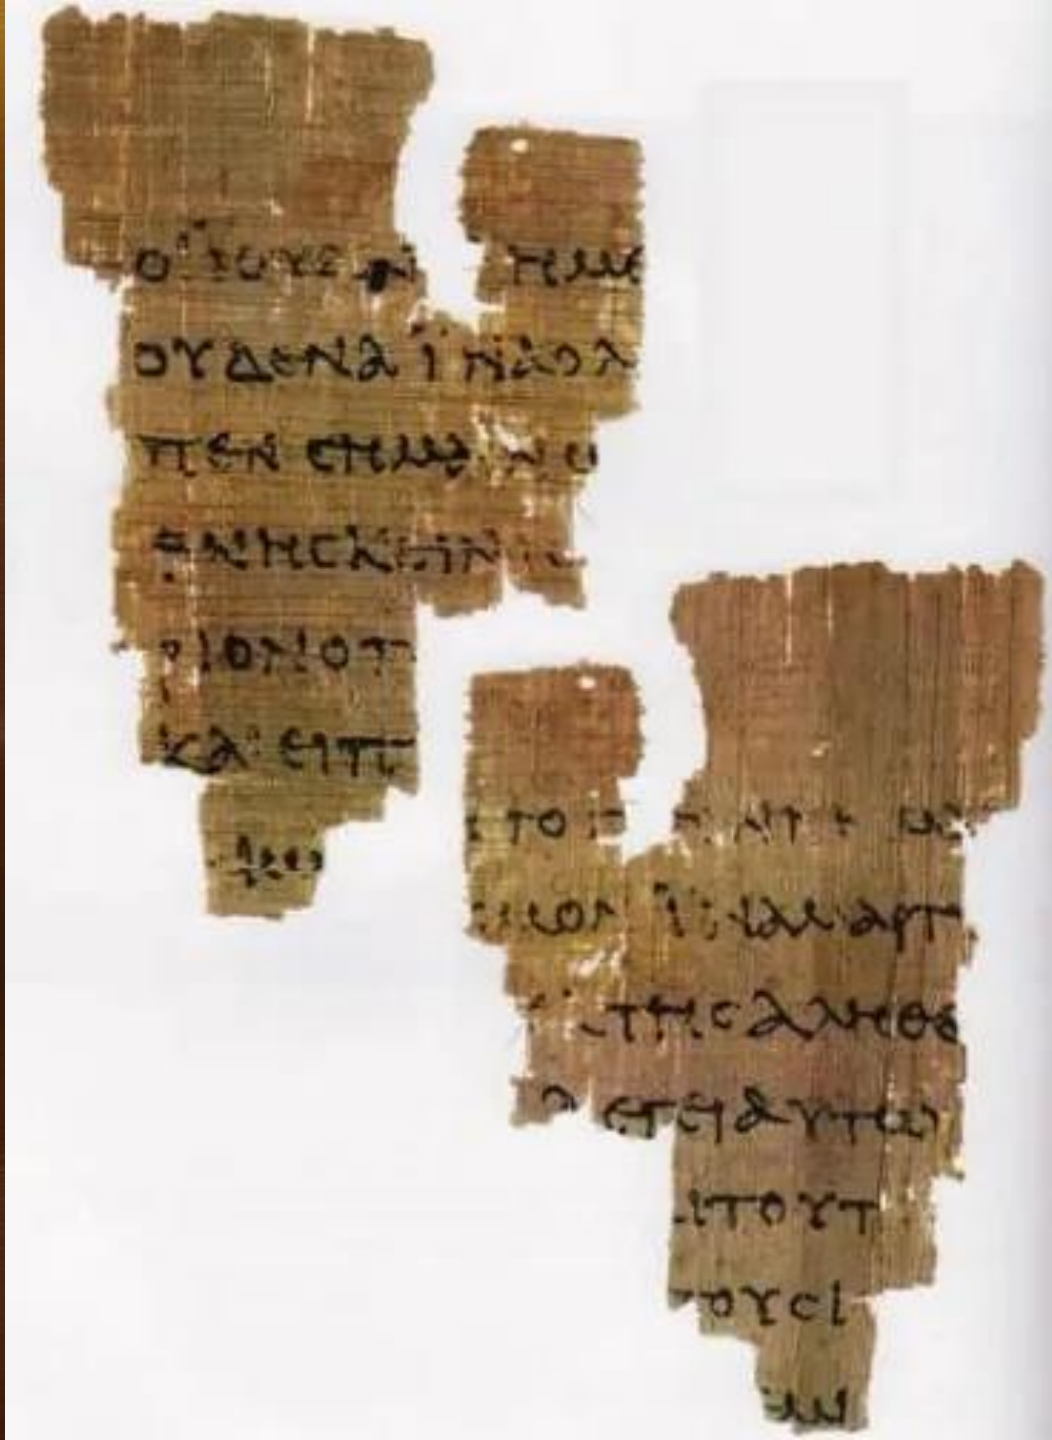 ΟΙ ΙΟΥΔΑΙ ΗΜΕ
ΟΥΔΕΝΑ ΙΝΑ Ο Λ
ΠΕΝ ϹΗΜΑΙΝΩ
ΘΝΗϹΚΕΙΝ ΙϹ
ΡΙΟΝ Ο Π
ΚΑΙ ΕΙΠ
ΜΙΟ
ΤΟ Γ Ν ΝΗΜΑΙ
ϹΜΟΝ ΙΝΑ ΜΑΡΤ
ΤΗϹ ΑΛΗΘΕ
ΛΕΓΕΙ ΑΥΤΩ
ΑΙ ΤΟΥΤ
ΤΟΥϹ Ι
ΕΜΙ